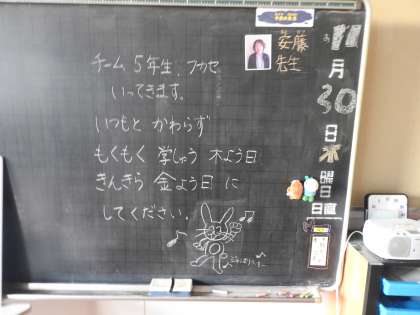 チーム 5年生、フカセ
いってきます。
いつもと かわらず
もくもく 学しゅう 木よう日
きんきら 金よう日 に
してください。
安藤
先生
11
月
30
日
水
曜
日
日直